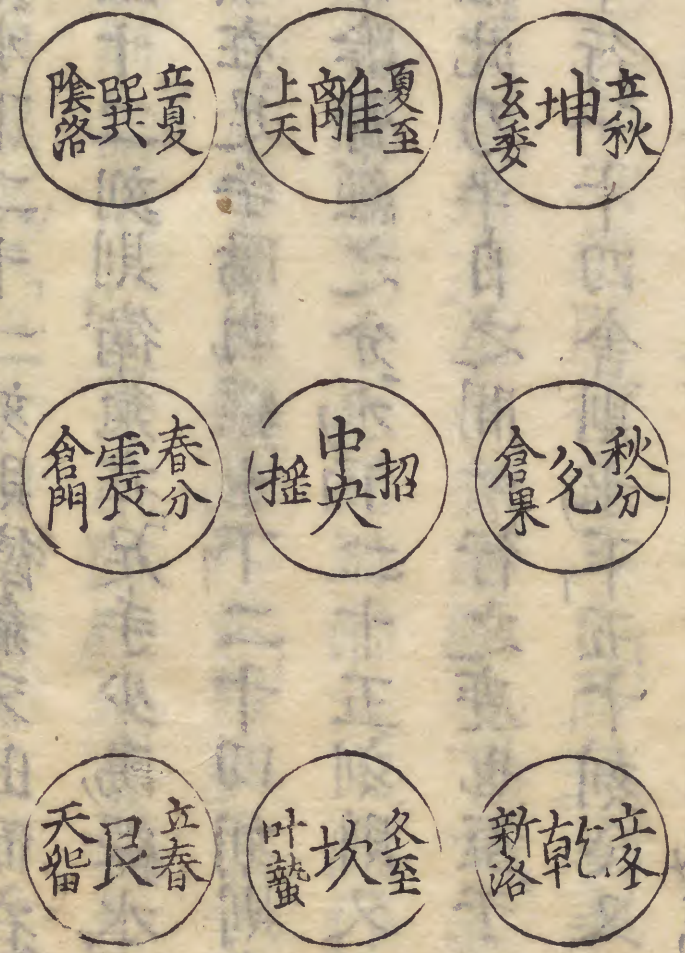 立秋
坤
玄委
夏至
離
上天
立夏
巽
陰洛
秋分
兊
倉果
招
中央
搖
春分
震
倉門
立冬
乾
新洛
冬至
坎
叶蟄
立春
艮
天畱